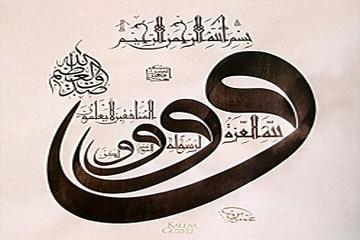 بسم الله الرحمن الرحيم
ولله العزة
ولرسوله
وللمؤمنين
ولكن
المنافقين لا يعلمون
صدق الله العظيم
KALEM
GÜZELİ